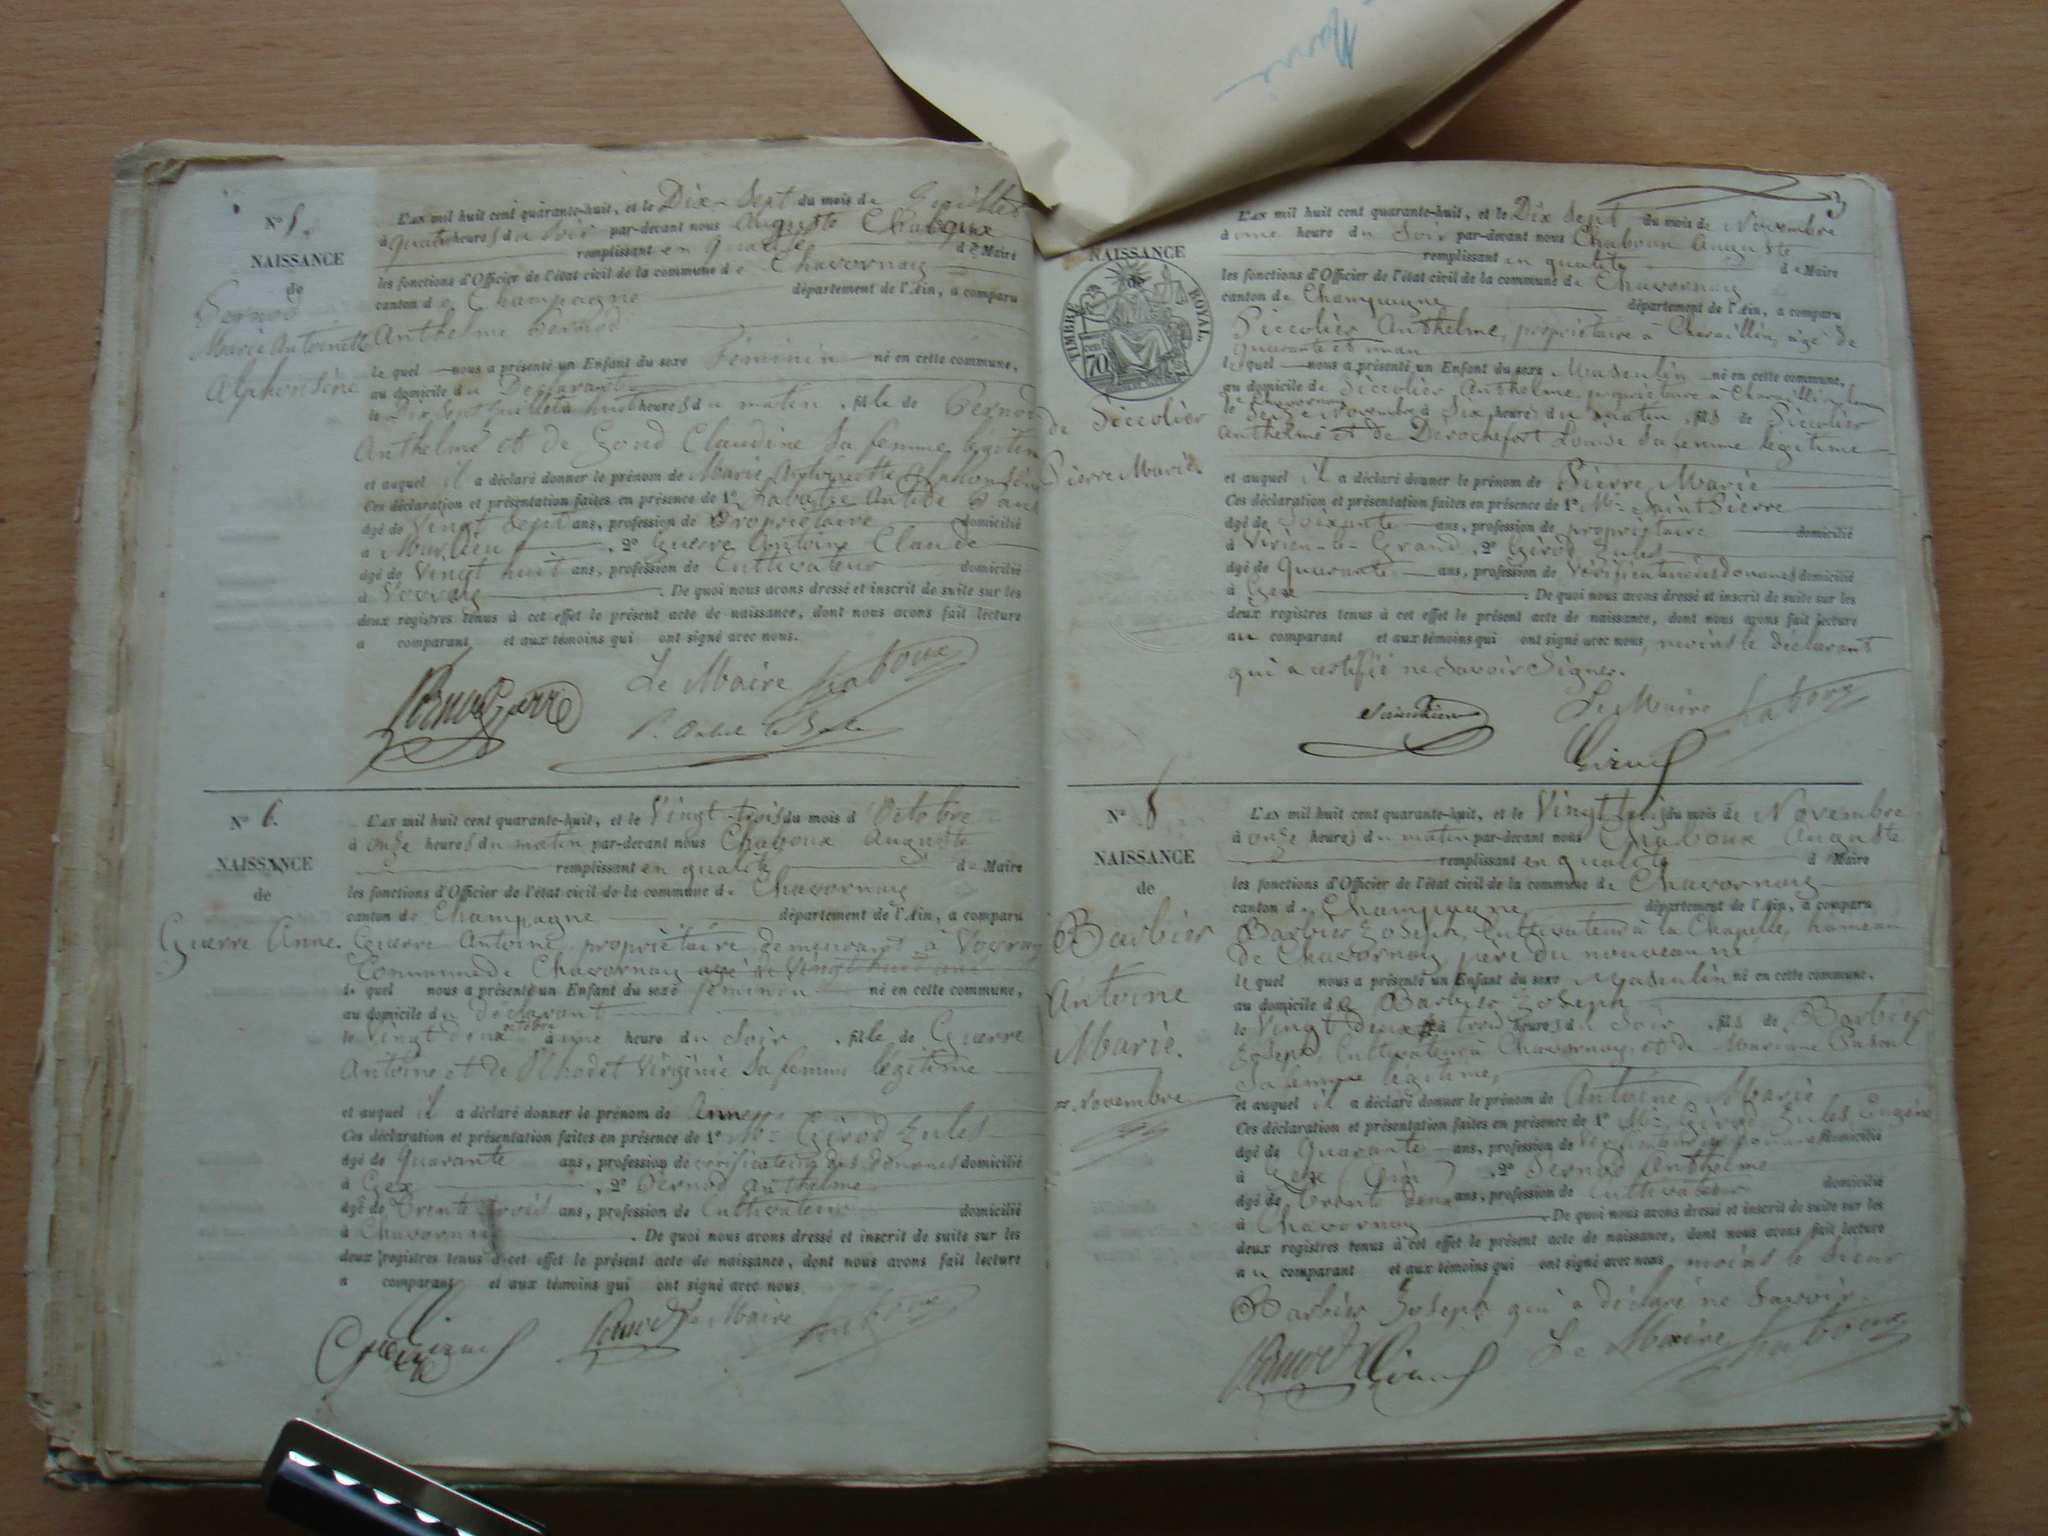 N° 5.
NAISSANCE
de
Pernod
Marie Antoinette
Alphonsine
L'AN mil huit cent quarante-huit, et le Dix-Sept du mois de Juillet
à quatre heures du soir par-devant nous Auguste Chaboux
remplissant en qualité de Maire
les fonctions d'Officier de l'état civil de la commune de Chavornay
canton de Champagne département de l'Ain, a comparu
Anthelme Pernod
le quel nous a présenté un Enfant du sexe Féminin né en cette commune,
au domicile du Déclarant
le Dix Sept juillet à huit heures du matin, fille de Pernod
Anthelme et de Gond Claudine Sa femme légitime
et auquel il a déclaré donner le prénom de Marie Antoinette Alphonsine
Ces déclaration et présentation faites en présence de 1°
âgé de Vingt Sept ans, profession de Propriétaire domicilié
à , 2° Guerre Antoine Claude
âgé de Vingt huit ans, profession de Cultivateur domicilié
à Vovray . De quoi nous avons dressé et inscrit de suite sur les
deux registres tenus à cet effet le présent acte de naissance, dont nous avons fait lecture
a comparant et aux témoins qui ont signé avec nous.
Pernod Guerre Le Maire Chaboux
N° 6.
NAISSANCE
de
Guerre Anne.
L'AN mil huit cent quarante-huit, et le Vingt-trois du mois d'Octobre
à onze heures du matin par-devant nous Chaboux Auguste
remplissant en qualité de Maire
les fonctions d'Officier de l'état civil de la commune de Chavornay
canton de Champagne département de l'Ain, a comparu
Guerre Antoine, propriétaire demeurant à Vovray
Commune de Chavornay agé de Vingt huit ans
le quel nous a présenté un Enfant du sexe féminin né en cette commune,
au domicile du déclarant
le Vingt deux octobre à une heure du Soir, fille de Guerre
Antoine et de Rhodet Virginie Sa femme légitime
et auquel il a déclaré donner le prénom de Anne
Ces déclaration et présentation faites en présence de 1° Mr Girod Jules
âgé de Quarante ans, profession de vérificateur des douanes domicilié
à Gex , 2° Pernod Anthelme
âgé de Trente trois ans, profession de Cultivateur domicilié
à Chavornay . De quoi nous avons dressé et inscrit de suite sur les
deux registres tenus à cet effet le présent acte de naissance, dont nous avons fait lecture
a comparant et aux témoins qui ont signé avec nous.
Guerre Girod Pernod Le Maire Chaboux
3
NAISSANCE
de
TIMBRE ROYAL
70
de Piccolier
Pierre Marie
L'AN mil huit cent quarante-huit, et le Dix Sept du mois de Novembre
à une heure du Soir par-devant nous Chaboux Auguste
remplissant en qualité de Maire
les fonctions d'Officier de l'état civil de la commune de Chavornay
canton de Champagne département de l'Ain, a comparu
Piccolier Anthelme, propriétaire à Charaillin, âgé de
quarante et un an
le quel nous a présenté un Enfant du sexe Masculin né en cette commune,
au domicile de Piccolier Anthelme, propriétaire à Charaillin
de Chavornay
le Seize Novembre à Six heures du matin, fils de Piccolier
Anthelme et de Derochefort Louise Sa femme légitime
et auquel il a déclaré donner le prénom de Pierre Marie
Ces déclaration et présentation faites en présence de 1° Mr Saint Pierre
âgé de Soixante ans, profession de propriétaire domicilié
à Virieu-le-Grand, 2° Girod Jules
âgé de Quarante ans, profession de Vérificateur des douanes domicilié
à Gex . De quoi nous avons dressé et inscrit de suite sur les
deux registres tenus à cet effet le présent acte de naissance, dont nous avons fait lecture
au comparant et aux témoins qui ont signé avec nous, moins le déclarant
qui a certifié ne Savoir Signer.
Saint Pierre Le Maire Chaboux
Girod
N° 8
NAISSANCE
de
Barbier
Antoine
Marie.
22 Novembre
L'AN mil huit cent quarante-huit, et le Vingt trois du mois de Novembre
à onze heures du matin par-devant nous Chaboux Auguste
remplissant en qualité de Maire
les fonctions d'Officier de l'état civil de la commune de Chavornay
canton de Champagne département de l'Ain, a comparu
Barbier Joseph, Cultivateur à la Chapelle, hameau
de Chavornay, père du nouveau né
le quel nous a présenté un Enfant du sexe Masculin né en cette commune.
au domicile de Barbier Joseph
le Vingt deux à trois heures du Soir, fils de Barbier
Joseph, Cultivateur à Chavornay et de Mariane
Sa femme légitime,
et auquel il a déclaré donner le prénom de Antoine Marie
Ces déclaration et présentation faites en présence de 1° Mr Girod Jules Eugène
âgé de Quarante ans, profession de Vérificateur des douanes domicilié
à Gex Ain , 2° Pernod Anthelme
âgé de Trente deux ans, profession de Cultivateur domicilié
à Chavornay . De quoi nous avons dressé et inscrit de suite sur les
deux registres tenus à cet effet le présent acte de naissance, dont nous avons fait lecture
au comparant et aux témoins qui ont signé avec nous, moins le Sieur
Barbier Joseph qui a déclaré ne Savoir.
Pernod Girod Le Maire Chaboux